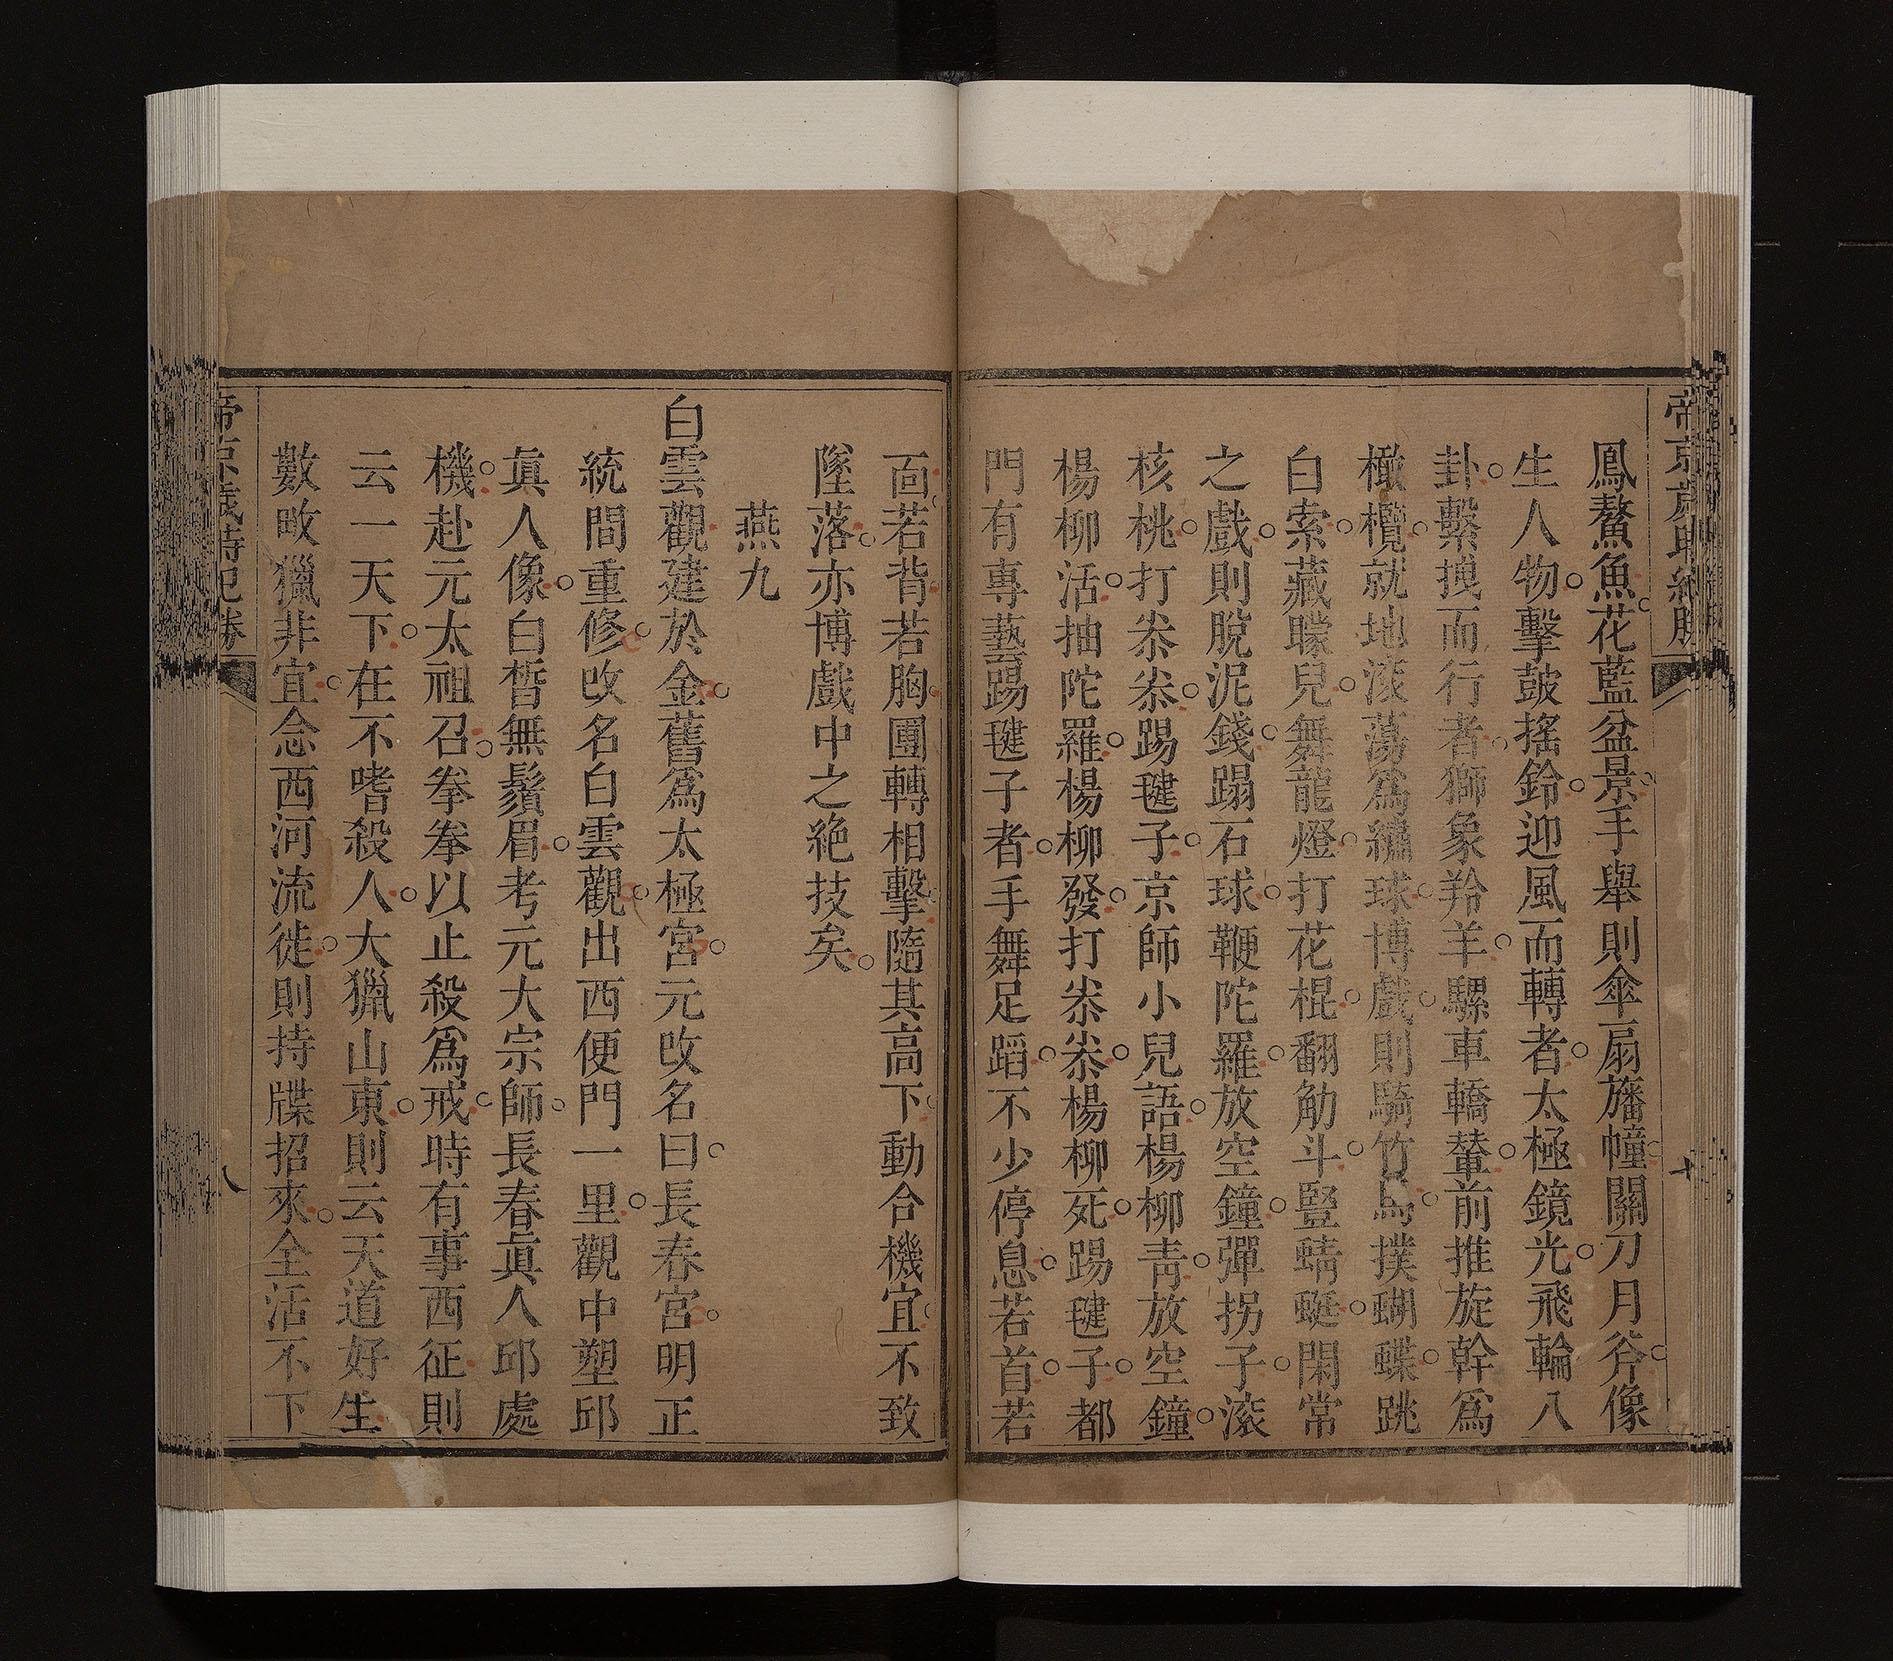 帝京歲時紀勝
鳳鰲魚花藍盆景手舉則傘扇旛幢關刀月斧像
生人物擊鼓搖鈴迎風而轉者太極鏡光飛輪八
卦繫拽而行者獅象羚羊騾車轎輦前推旋幹爲
橄欖就地滚蕩爲繡球博戲則騎竹馬撲蝴蝶跳
白索藏矇兒舞龍燈打花棍翻觔斗豎蜻蜓閑常
之戲則脫泥錢蹋石球鞭陀羅放空鐘彈拐子滚
核桃打尜尜踢毽子京師小兒語楊柳靑放空鐘
楊柳活抽陀羅楊柳發打尜尜楊柳死踢毽子都
門有專藝踢毽子者手舞足蹈不少停息若首若
靣若背若胸團轉相擊隨其高下動合機宜不致
墜落亦博戲中之絶技矣
燕九
白雲觀建於金舊爲太極宮元改名曰長春宮明正
統間重修改名白雲觀出西便門一里觀中塑邱
眞人像白晳無鬚眉考元大宗師長春眞人邱處
機赴元太祖召拳拳以止殺爲戒時有事西征則
云一天下在不嗜殺人大獵山東則云天道好生
數畋獵非宜念西河流徙則持牒招來全活不下
帝京歲時紀勝
八